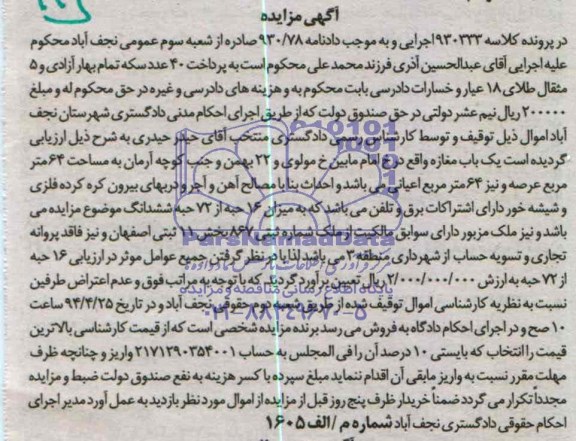 آگهی مزایده
در پرونده کلاسه ۹۳۰۳۳۳ اجرایی و به موجب دادنامه ۹۳۰/۷۸ صادره از شعبه سوم عمومی نجف آباد محکوم
علیه اجرایی آقای عبدالحسین آذری فرزند محمد علی محکوم است به پرداخت ۴۰ عدد سکه تمام بهار آزادی و ۵
مثقال طلای ۱۸ عیار و خسارات دادرسی بابت محکوم به و هزینه های دادرسی و غیره در حق محکوم له و مبلغ
۲۰۰۰۰۰ ریال نیم عشر دولتی در حق صندوق دولت که از طریق اجرای احکام مدنی دادگستری شهرستان نجف
آباد اموال ذیل توقیف و توسط کارشناس رسمی دادگستری منتخب آقای حیدر حیدری به شرح ذیل ارزیابی
گردیده است یک باب مغازه واقع در خ امام مابین خ مولوی و ۲۲ بهمن و جنب کوچه آرمان به مساحت ۶۴ متر
مربع عرصه و نیز ۶۴ متر مربع اعیانی می باشد و احداث بنا با مصالح آهن و آجر و دربهای بیرون کره کرده فلزی
و شیشه خور دارای اشتراکات برق و تلفن می باشد که به میزان ۱۶ حبه از ۷۲ حبه ششدانگ موضوع مزایده می
باشد که مغازه مزبور دارای سوابق مالکیت از ملک شماره ثبتی ۸۶۷ بخش ۱۱ ثبتی اصفهان و نیز فاقد پروانه
تجاری و تسویه حساب از شهرداری منطقه ۳ می باشد لذا با در نظر گرفتن جمیع عوامل موثر در ارزیابی ۱۶ حبه
از ۷۲ حبه به ارزش ۲/۰۰۰/۰۰۰/۰۰۰ ریال تعیین برآورد گردید که با توجه به مراتب فوق و عدم اعتراض طرفین
نسبت به نظریه کارشناسی اموال توقیف شده از طریق شعبه دوم حقوقی نجف آباد و در تاریخ ۹۴/۴/۲۵ ساعت
۱۰ صبح و در اجرای احکام دادگاه به فروش می رسد برنده مزایده شخصی است که از قیمت کارشناسی بالاترین
قیمت را انتخاب که بایستی ۱۰ درصد آن را فی المجلس به حساب ۲۱۷۱۲۹۰۳۵۴۰۰۱ واریز و چنانچه ظرف
مهلت مقرر نسبت به واریز مابقی آن اقدام ننماید مبلغ سپرده با کسر هزینه به نفع صندوق دولت ضبط و مزایده
مجدداً تکرار می گردد ضمناً خریدار ظرف پنج روز قبل از مزایده از اموال مورد نظر بازدید به عمل آورد مدیر اجرای
احکام حقوقی دادگستری نجف آباد شماره م/الف ۱۶۰۵
ParsNamadData
۰۲۱-۸۸۳۴۹۶۷۰-۵